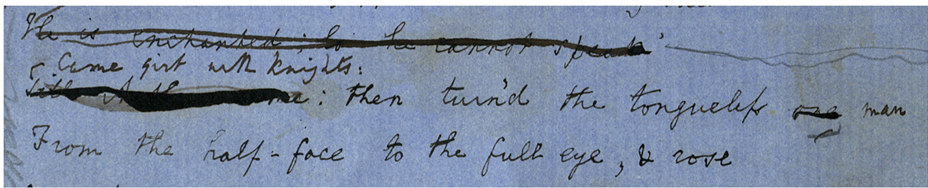 He is enchanted; lo he cannot speak'
Came girt with knights:
then turn'd the tongueless man
From the half-face to the full eye, & rose